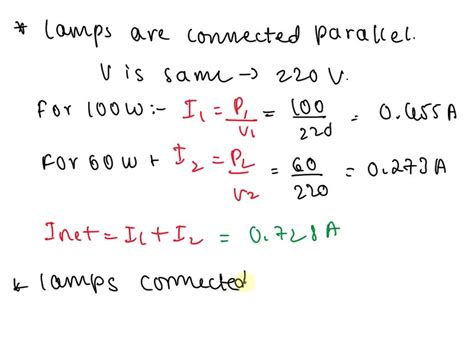 * Lamps are connected parallel.
V is same → 220 V.
For 100W:- I₁ = P₁/V₁ = 100/220 = 0.455 A
For 60 W + I₂ = P₂/V₂ = 60/220 = 0.273 A
Inet = I₁ + I₂ = 0.728 A
* Lamps connected